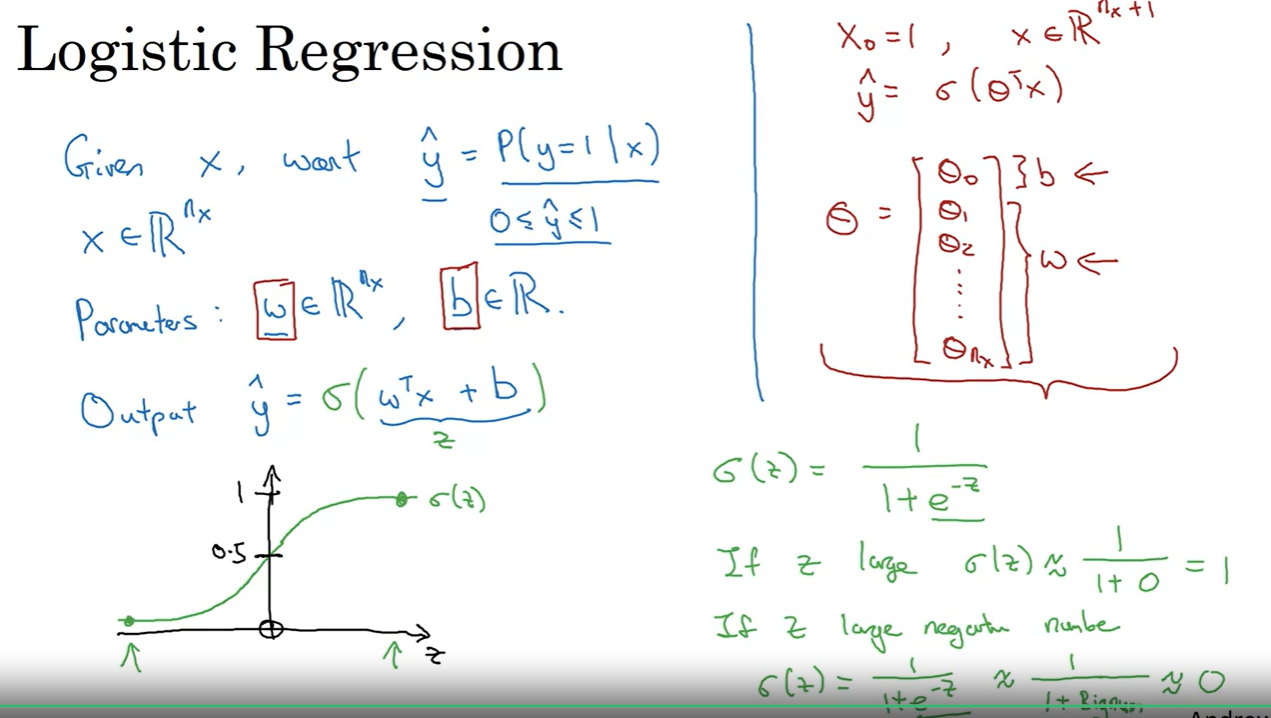 Logistic Regression
Given x, want ŷ = P(y=1 | x)
x ∈ ℝⁿˣ
0 ≤ ŷ ≤ 1
Parameters: w ∈ ℝⁿˣ, b ∈ ℝ.
Output ŷ = σ(wᵀx + b)
z
1
σ(z)
0.5
z
x₀ = 1, x ∈ ℝⁿˣ⁺¹
ŷ = σ(θᵀx)
θ = [θ₀ θ₁ θ₂ ⋮ θₙₓ]
} b ←
} w ←
σ(z) = 1 / (1 + e⁻ᶻ)
If z large σ(z) ≈ 1 / (1 + 0) = 1
If z large negative number
σ(z) = 1 / (1 + e⁻ᶻ) ≈ 1 / (1 + Bignum) ≈ 0